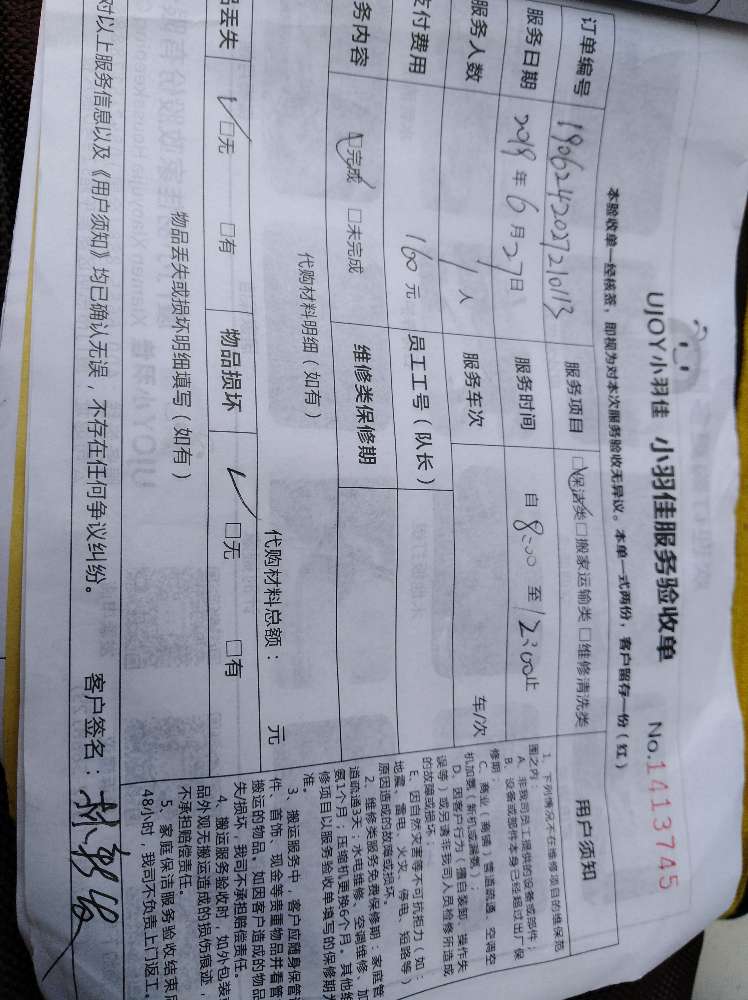 UJOY小羽佳 小羽佳服务验收单 No.1413745
本验收单一经核签，即视为对本次服务验收无异议。本单一式两份，客户留存一份（红）
订单编号 服务项目 □保洁类 □搬家运输类 □维修清洗类
服务日期 2019年6月27日 服务时间 自8:00至12:00止
服务人数 1人 服务车次 车/次
支付费用 160元 员工工号（队长）
务内容 □完成 □未完成 维修类保修期
代购材料明细（如有）
代购材料总额： 元
品丢失 □无 □有 物品损坏 □无 □有
物品丢失或损坏明细填写（如有）
对以上服务信息以及《用户须知》均已确认无误，不存在任何争议纠纷。 客户签名：
用户须知
1、下列情况不在维修项目的维保范
围之内：
A、非我司员工提供的设备或部件；
B、设备或部件本身已经超过出厂保
修期；
C、商业（商铺）管道疏通、空调空
机加氨（新机或漏氨）；
D、因客户行为（擅自装卸、操作失
误等）或另请非我司人员检修所造成
的故障或损坏；
E、因自然灾害等不可抗拒力（如：
地震、雷电、火灾、停电、短路等）
原因造成的故障或损坏。
2、维修类服务免费保修期：家庭管
道疏通3天；水电维修、空调维修、加
氨1个月；压缩机更换6个月。其他维
修项目以服务验收单填写的保修期为
准。
3、搬运服务中，客户应随身保管
件、首饰、现金等贵重物品并看管
搬运的物品。如因客户造成的物品
失/损坏，我司不承担赔偿责任。
4、搬运服务验收时，如外包装
品外观无搬运造成的损伤痕迹，
不承担赔偿责任。
5、家庭保洁服务验收结束后
48小时，我司不负责上门返工。